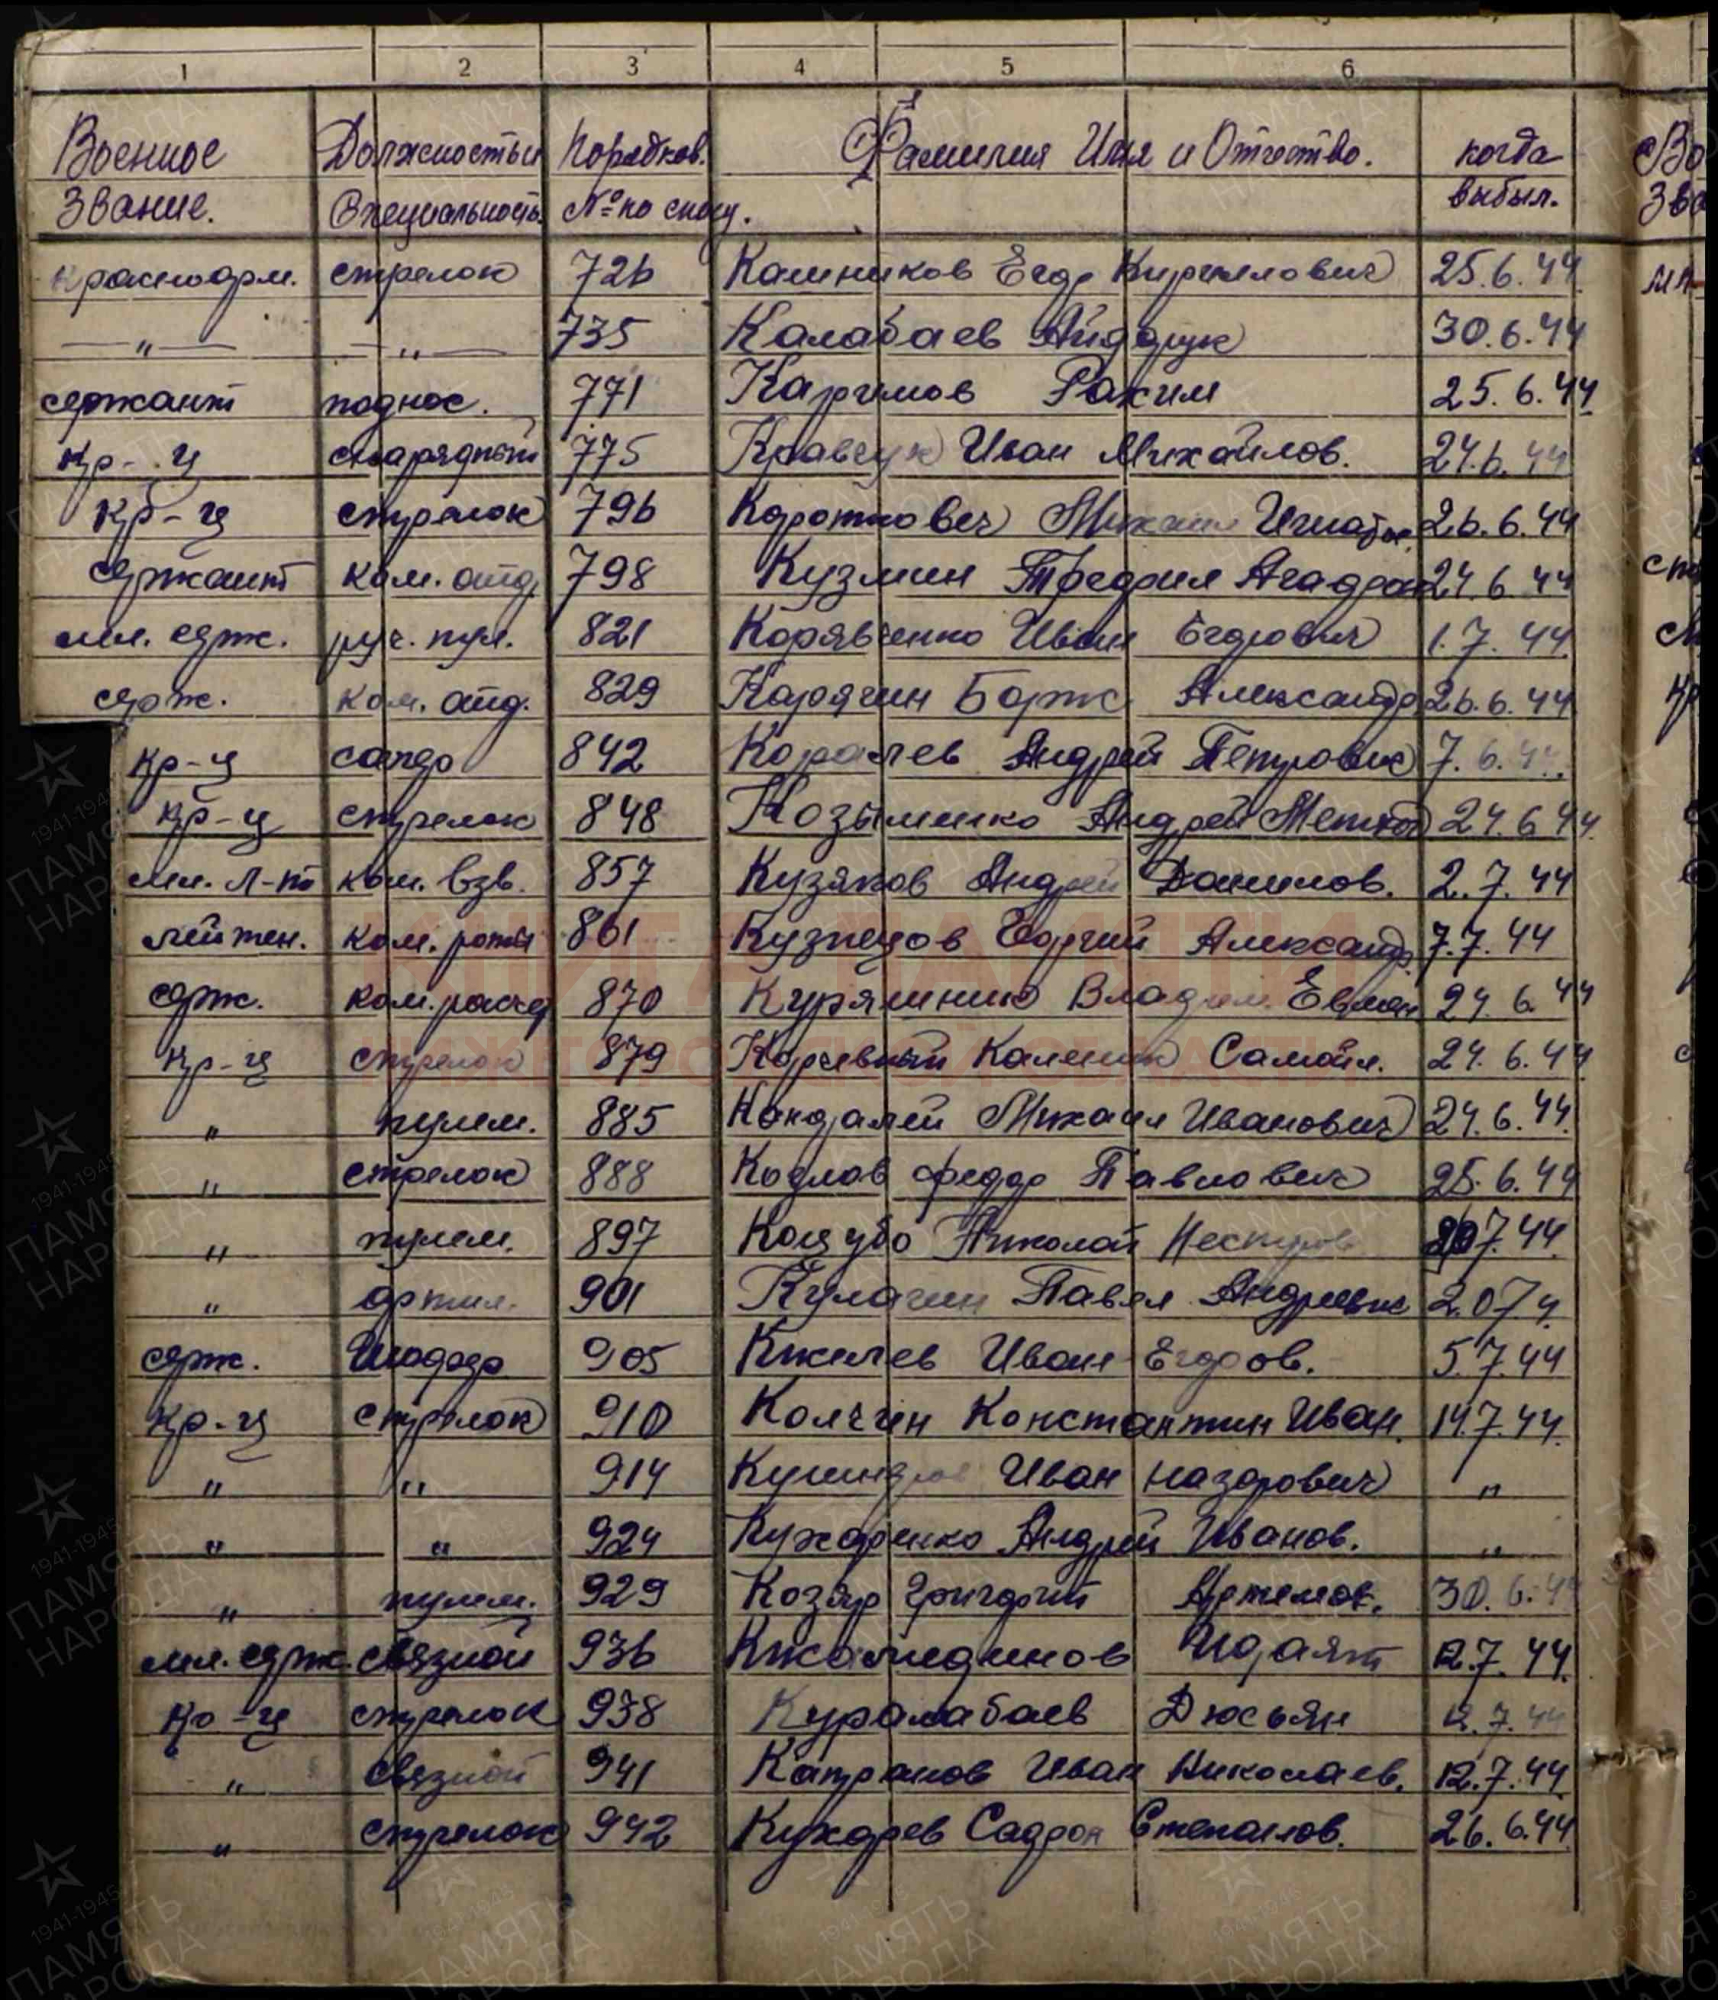 1 2 3 4 5 6
Военное Должность и Порядков. Фамилия Имя и Отчество. когда
звание. Специальность №по списку. выбыл.
красноарм. стрелок 726 Калинников Егор Кириллович 25.6.44
—„— —„— 735 Калабаев 30.6.44
сержант поднос. 771 Каримов Рахим 25.6.44
кр-ц снарядный 775 Кравчук Иван Михайлов. 24.6.44
кр-ц стрелок 796 Короткович Михаил 26.6.44
сержант ком. отд. 798 Кузмин 24.6.44
мл. серж. руч. пул. 821 Корявченко Иван Егорович 1.7.44
серж. ком. отд. 829 Карягин Борис Александр. 26.6.44
кр-ц сапер 842 Королев Андрей Петрович 7.6.44.
кр-ц стрелок 848 Андрей 24.6.44
мл. л-т ком. взв. 857 Кузяков Андрей Данилов. 2.7.44
лейтен. ком. роты 861 Кузнецов Георгий Александ. 7.7.44
серж. ком. расчет 870 Владим. 24.6.44
кр-ц стрелок 879 Самойл. 24.6.44
„ пулем. 885 Кондалей Михаил Иванович 24.6.44.
„ стрелок 888 Козлов Федор Павлович 25.6.44
„ пулем. 897 Коцубо Николай 7.44.
„ артил. 901 Кулагин Павел Андреевич
серж. 905 Кижлев Иван Егоров. 5.7.44
кр-ц стрелок 910 Колчин Константин Иван. 14.7.44.
„ „ 914 Иван Назарович „
„ „ 924 Кухаренко Андрей Иванов. „
„ пулем. 929 Козяр Григорий Артемов. 30.6.44
мл. серж. связной 936 Идаят 12.7.44.
кр-ц стрелок 938 Куралабаев Дюсьян 12.7.44
„ связной 941 Катранов Иван Николаев. 12.7.44
„ стрелок 942 Кухарев Степанов. 26.6.44
КНИГА ПАМЯТИ
НИЖЕГОРОДСКОЙ ОБЛАСТИ
1941-1945
ПАМЯТЬ
НАРОДА